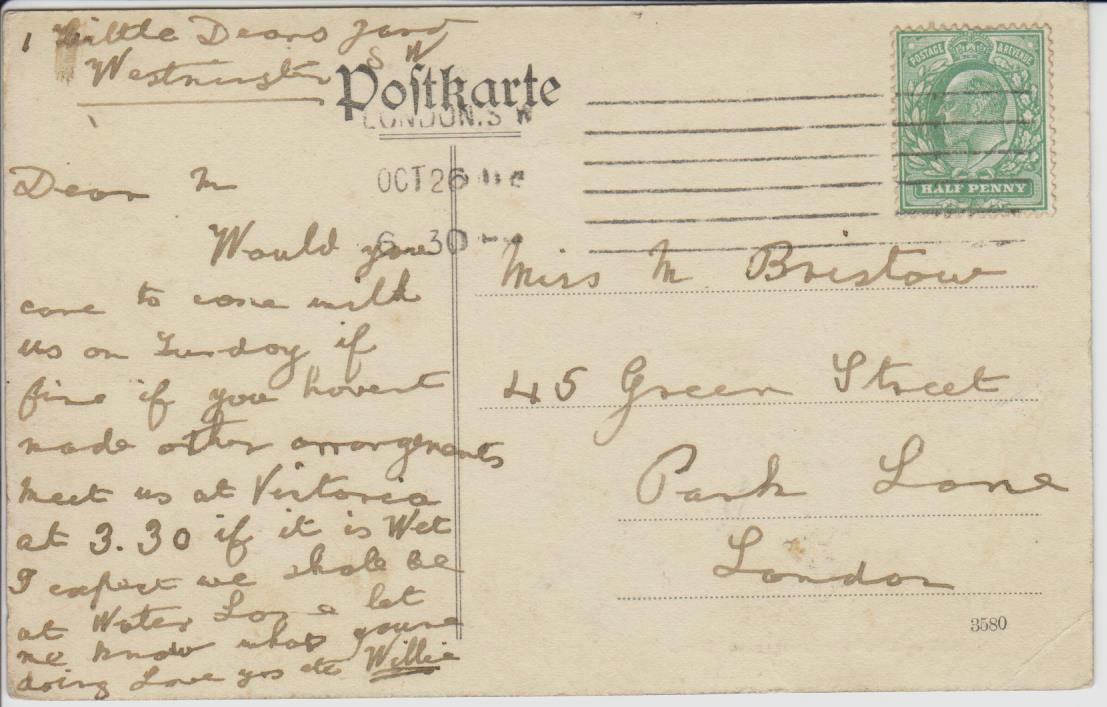 1 Little Deans Yard
Westminster S W
Postkarte
LONDON. S W
OCT 26
6 30
POSTAGE & REVENUE
HALF PENNY
Dear M
Would you
care to come with
us on Sunday if
fine if you havent
made other arrangements
meet us at Victoria
at 3.30 if it is Wet
I expect we shale be
at Water Lane let
me know what youre
doing Love yrs etc Willie
Miss M Bristow
45 Green Street
Park Lane
London
3580